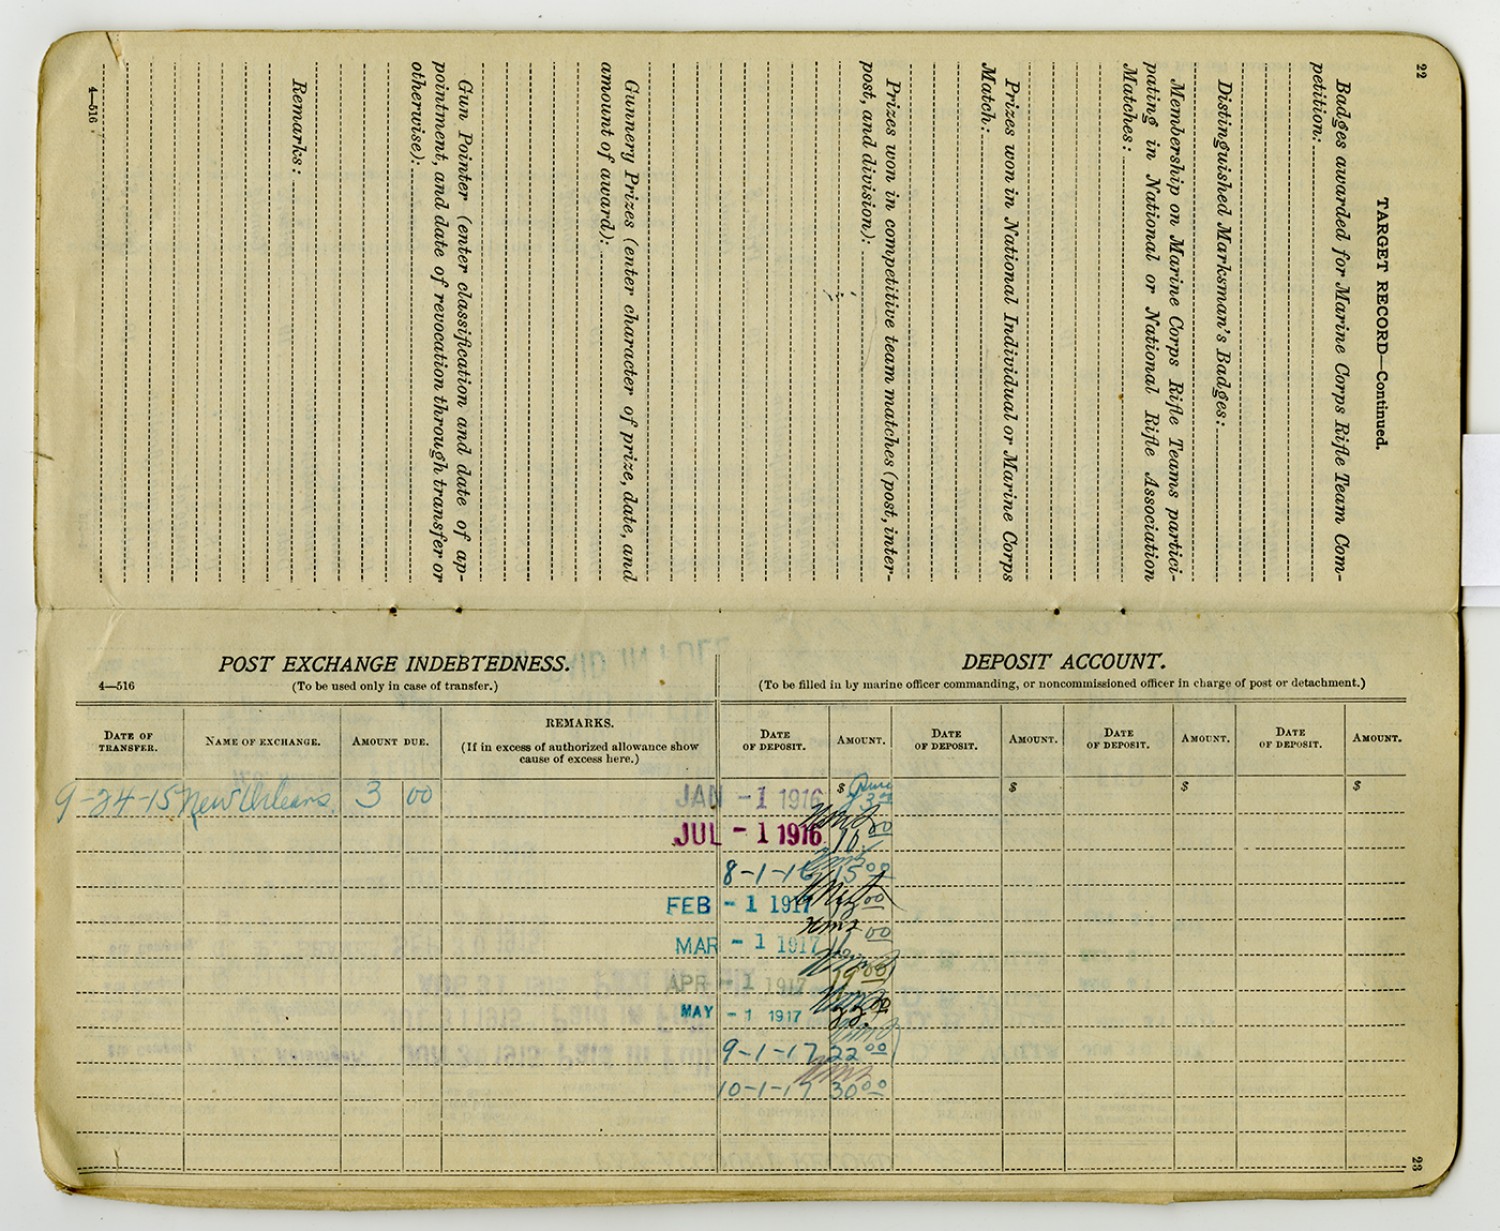 22
TARGET RECORD—Continued.
Badges awarded for Marine Corps Rifle Team Com-
petition:
Distinguished Marksman's Badges:
Membership on Marine Corps Rifle Teams partici-
pating in National or National Rifle Association
Matches:
Prizes won in National Individual or Marine Corps
Match:
Prizes won in competitive team matches (post, inter-
post, and division):
Gunnery Prizes (enter character of prize, date, and
amount of award):
Gun Pointer (enter classification and date of ap-
pointment, and date of revocation through transfer or
otherwise):
Remarks:
4—516
POST EXCHANGE INDEBTEDNESS.
4—516
(To be used only in case of transfer.)
DATE OF TRANSFER.
NAME OF EXCHANGE.
AMOUNT DUE.
REMARKS.
(If in excess of authorized allowance show
cause of excess here.)
9-24-15 New Orleans. 3 00
DEPOSIT ACCOUNT.
(To be filled in by marine officer commanding, or noncommissioned officer in charge of post or detachment.)
DATE OF DEPOSIT. AMOUNT. DATE OF DEPOSIT. AMOUNT. DATE OF DEPOSIT. AMOUNT. DATE OF DEPOSIT. AMOUNT.
JAN -1 1916 $ $ $ $
JUL -1 1916 10.00
8-1-16 15 00
FEB -1 1917 00
MAR -1 1917 00
APR -1 1917 00
MAY -1 1917
9-1-17 22 00
10-1-17 30 00
23